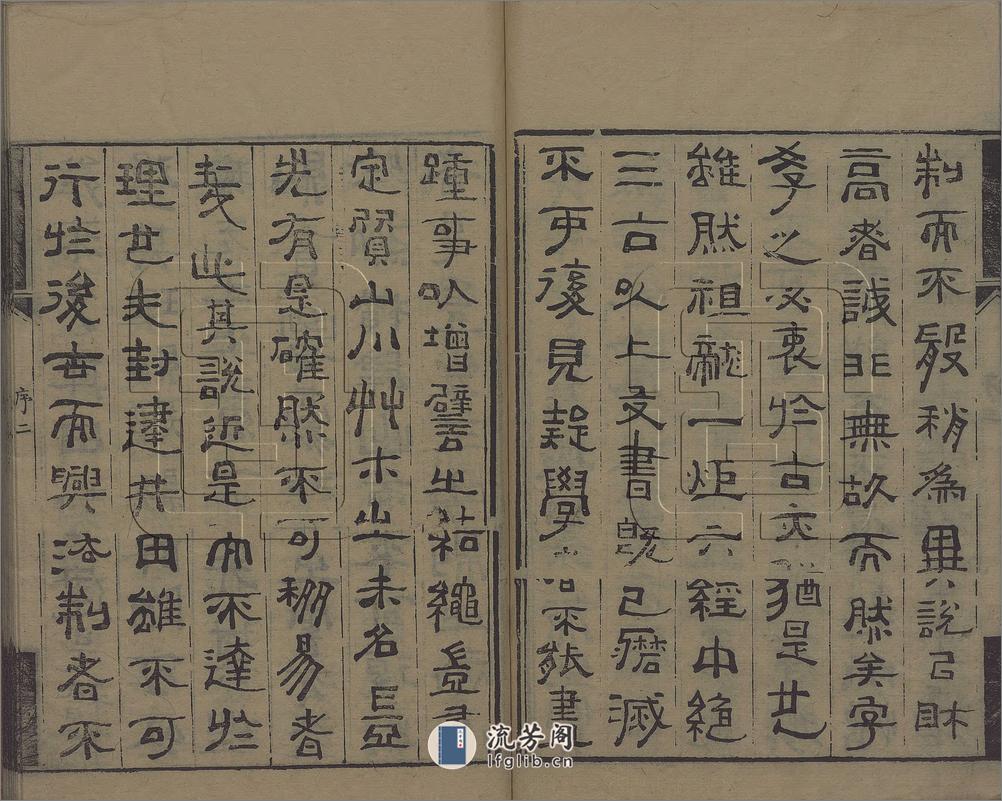 制而不稍為異說
高者誠非無故而然矣字
學之必衷於古亦猶是也
雖然祖龍一炬六經中絕
三古以上文書既已磨滅
不可復見疑學不能盡
踵事以增譬之結繩豈
定質山川艸木之未名豈
先有是確然不可移易者
歟此其說近是而不達於
理也夫封建井田雖不可
行於後世而興法制者不
序二
流芳阁
lfglib.cn